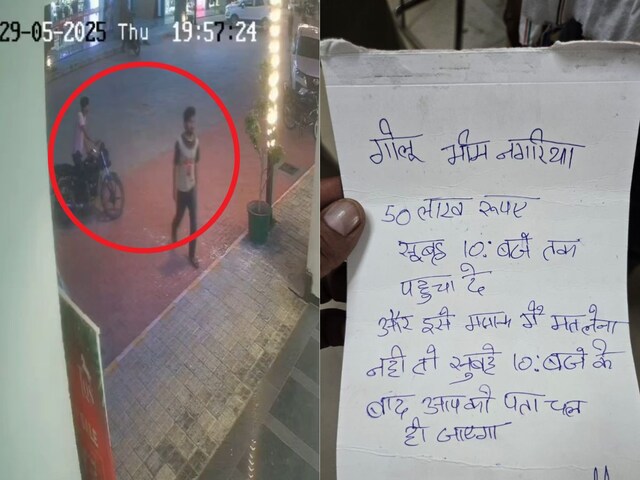 29-05-2025 Thu 19:57:24
गोलू भीम नगरिया
50 लाख रूपए
सुबह 10: बजे तक
पहुचा दे
और इसे मजाक में मत लेना
नही तो सुबह 10: बजे के
बाद आपको पता चल
ही जाएगा